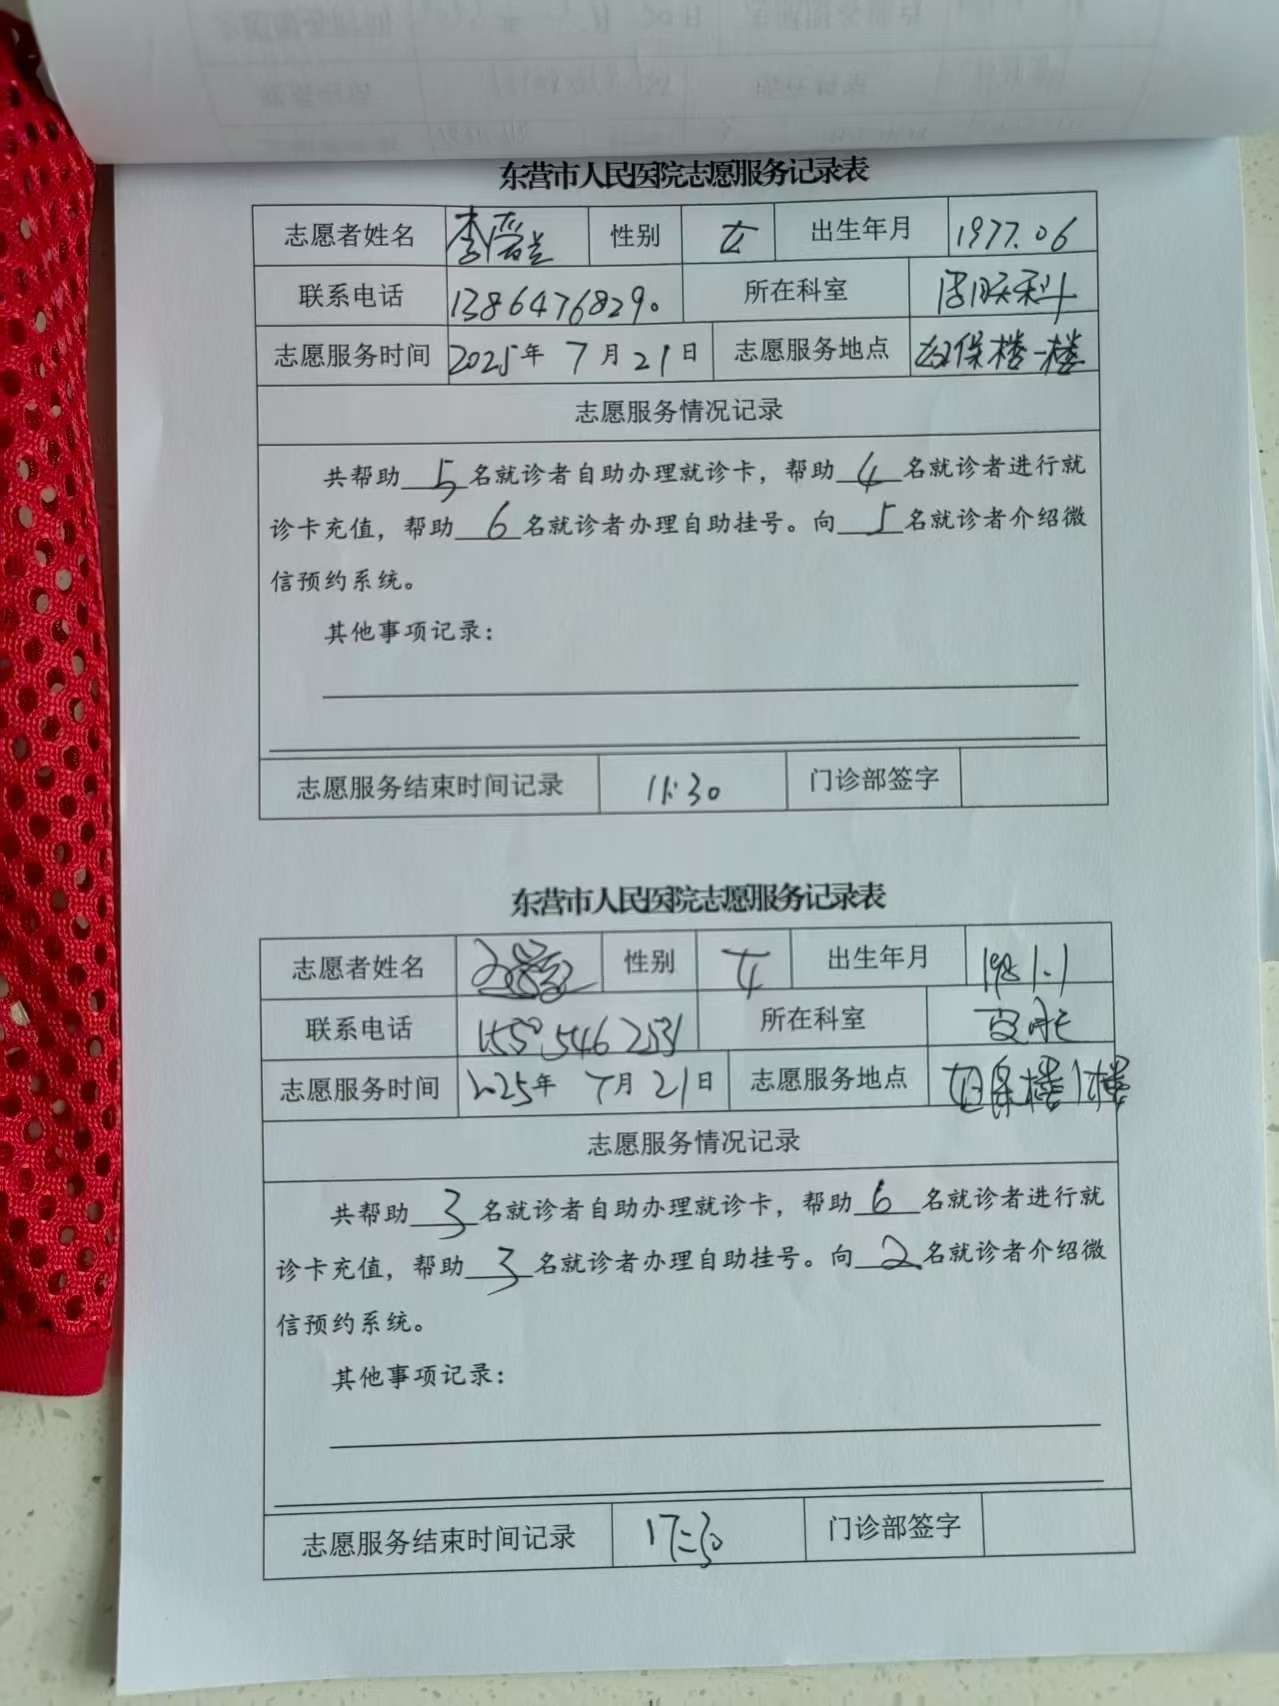 东营市人民医院志愿服务记录表
志愿者姓名 李 性别 女 出生年月 1977.06
联系电话 13864768290 所在科室 科
志愿服务时间 2025年 7月21日 志愿服务地点 妇保楼一楼
志愿服务情况记录
共帮助 5 名就诊者自助办理就诊卡，帮助 4 名就诊者进行就
诊卡充值，帮助 6 名就诊者办理自助挂号。向 5 名就诊者介绍微
信预约系统。
其他事项记录：
志愿服务结束时间记录 11:30 门诊部签字
东营市人民医院志愿服务记录表
志愿者姓名 性别 女 出生年月 1981.1
联系电话 所在科室
志愿服务时间 2025年 7月21日 志愿服务地点 妇保楼1楼
志愿服务情况记录
共帮助 3 名就诊者自助办理就诊卡，帮助 6 名就诊者进行就
诊卡充值，帮助 3 名就诊者办理自助挂号。向 2 名就诊者介绍微
信预约系统。
其他事项记录：
志愿服务结束时间记录 17:30 门诊部签字